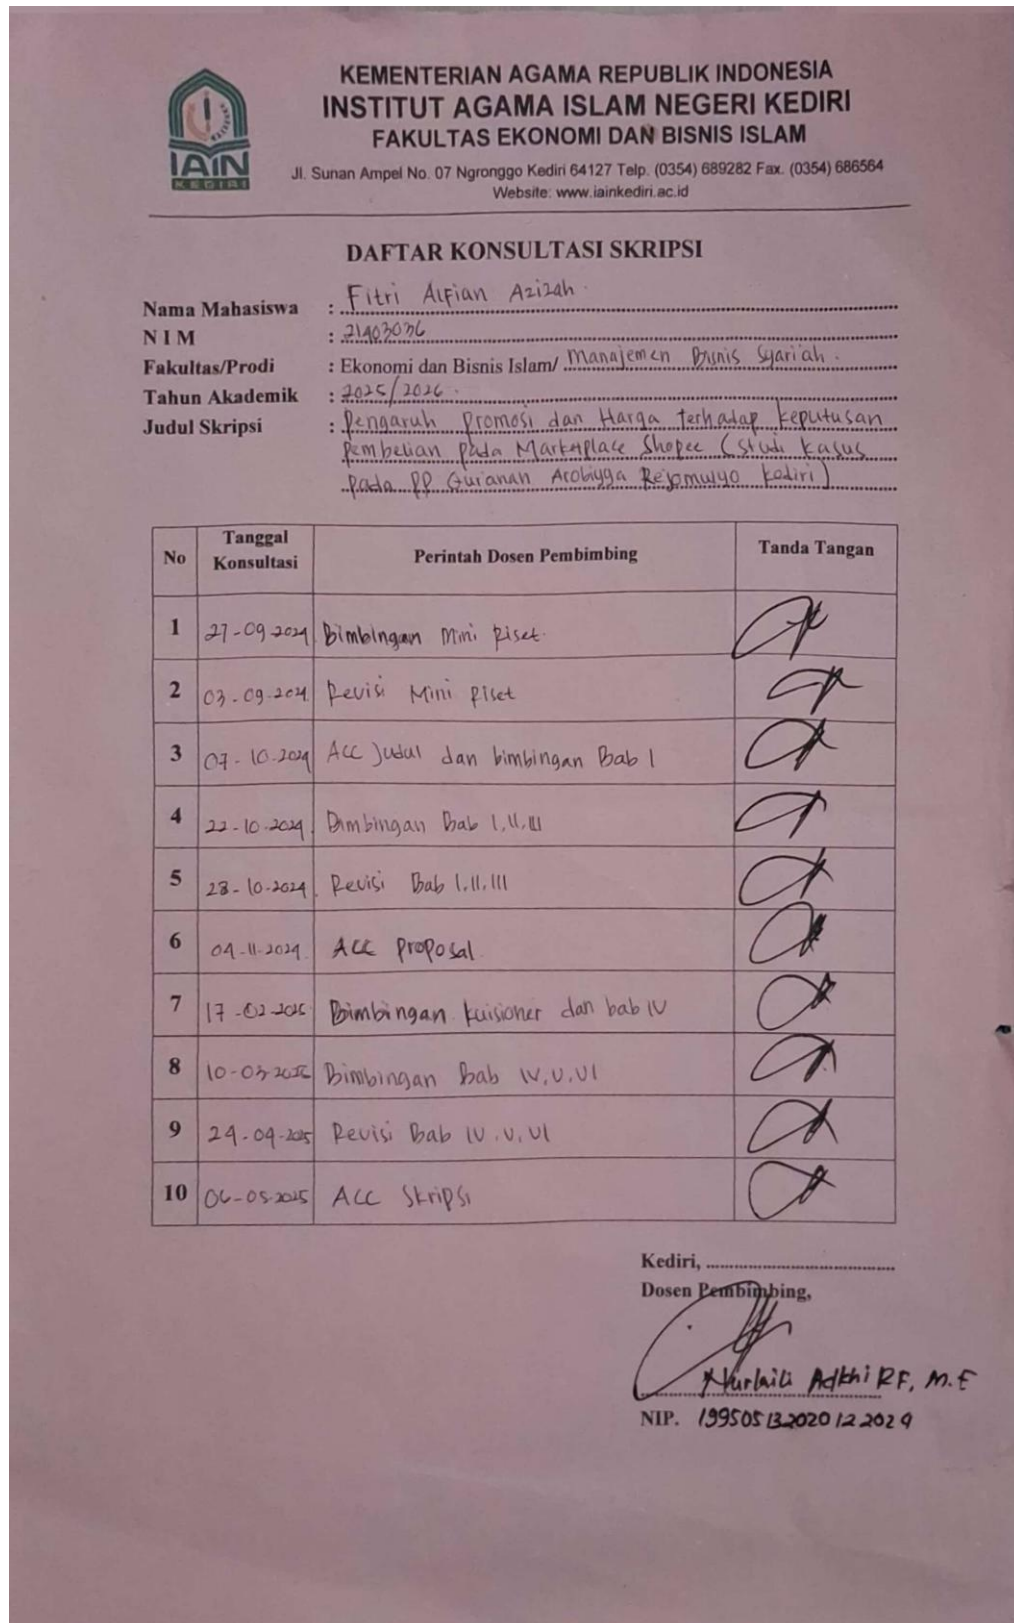 KEMENTERIAN AGAMA REPUBLIK INDONESIA
INSTITUT AGAMA ISLAM NEGERI KEDIRI
FAKULTAS EKONOMI DAN BISNIS ISLAM
IAIN
KEDIRI
Jl. Sunan Ampel No. 07 Ngronggo Kediri 64127 Telp. (0354) 689282 Fax. (0354) 686564
Website: www.iainkediri.ac.id
DAFTAR KONSULTASI SKRIPSI
Nama Mahasiswa : Fitri Alfian Azizah
N I M : 21403036
Fakultas/Prodi : Ekonomi dan Bisnis Islam/ Manajemen Bisnis Syari'ah.
Tahun Akademik : 2025/2026.
Judul Skripsi : Pengaruh Promosi dan Harga terhadap keputusan
Pembelian pada Marketplace Shopee (Studi Kasus
pada PP Qur'anan Arobiyya Rejomulyo Kediri)
No Tanggal Konsultasi Perintah Dosen Pembimbing Tanda Tangan
1 27-09-2024 Bimbingan Mini Riset.
2 03-09-2024 Revisi Mini Riset
3 07-10-2024 Acc Judul dan bimbingan Bab I
4 22-10-2024 Bimbingan Bab I,II,III
5 28-10-2024 Revisi Bab I.II.III
6 04-11-2024 ACC Proposal
7 17-02-2025 Bimbingan kuisioner dan bab IV
8 10-03-2025 Bimbingan Bab IV,V,VI
9 24-04-2025 Revisi Bab IV.V.VI
10 06-05-2025 ACC Skripsi
Kediri,
Dosen Pembimbing,
Nurlaili Adkhi RF, M.E
NIP. 199505132020122024